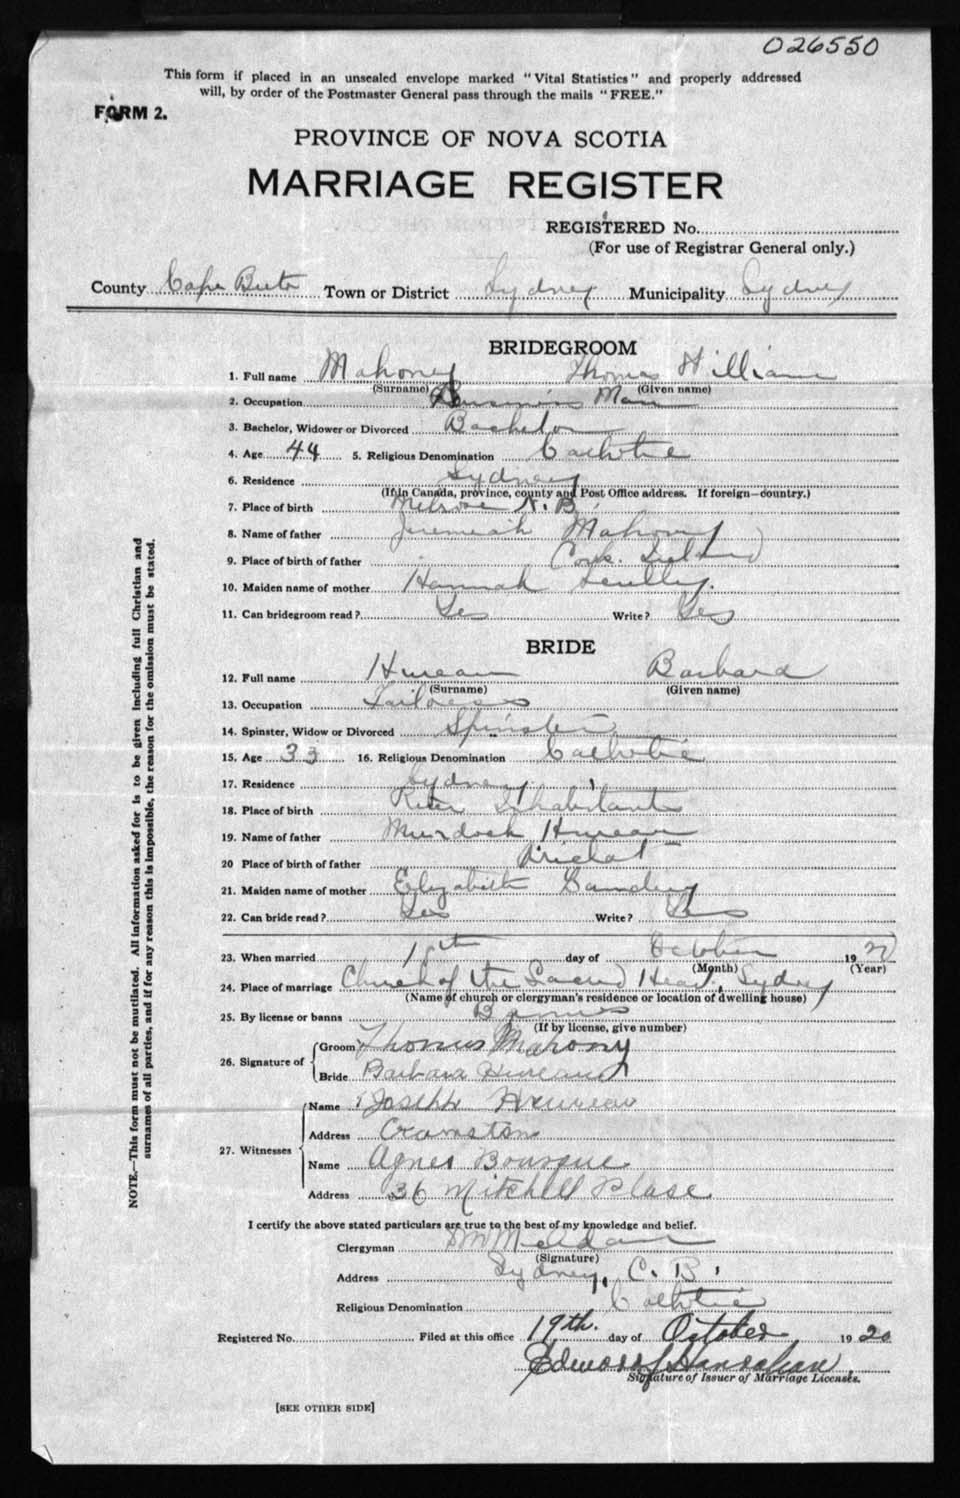 026550
This form if placed in an unsealed envelope marked "Vital Statistics" and properly addressed
will, by order of the Postmaster General pass through the mails "FREE."
FORM 2.
PROVINCE OF NOVA SCOTIA
MARRIAGE REGISTER
REGISTERED No.
(For use of Registrar General only.)
County Cape Breton Town or District Sydney Municipality Sydney
BRIDEGROOM
1. Full name Mahoney Thomas William
(Surname) (Given name)
2. Occupation Business Man
3. Bachelor, Widower or Divorced Bachelor
4. Age 44 5. Religious Denomination Catholic
6. Residence Sydney
(If in Canada, province, county and Post Office address. If foreign—country.)
7. Place of birth Melrose N.B.
8. Name of father Jeremiah Mahoney
9. Place of birth of father Cork. Ireland
10. Maiden name of mother Hannah Scully.
11. Can bridegroom read? Yes Write? Yes
BRIDE
12. Full name Hureau Barbara
(Surname) (Given name)
13. Occupation Tailoress
14. Spinster, Widow or Divorced Spinster
15. Age 33 16. Religious Denomination Catholic
17. Residence Sydney
18. Place of birth River Inhabitants
19. Name of father Murdoch Hureau
20 Place of birth of father Arichat
21. Maiden name of mother Elizabeth
22. Can bride read? Yes Write? Yes
23. When married 18th day of October 1920
(Month) (Year)
24. Place of marriage Church of the Sacred Heart, Sydney
(Name of church or clergyman's residence or location of dwelling house)
25. By license or banns Banns
(If by license, give number)
26. Signature of
Groom Thomas Mahony
Bride Barbara Hureau
27. Witnesses
Name Joseph Hureau
Address Cranston
Name Agnes Bourque
Address 36 Mitchell Plase
I certify the above stated particulars are true to the best of my knowledge and belief.
Clergyman
(Signature)
Address Sydney, C. B.
Religious Denomination Catholic
Registered No. Filed at this office 19th. day of October 1920
Edward Hanrahan
Signature of Issuer of Marriage Licenses.
[SEE OTHER SIDE]
NOTE.—This form must not be mutilated. All information asked for is to be given including full Christian and
surnames of all parties, and if for any reason this is impossible, the reason for the omission must be stated.